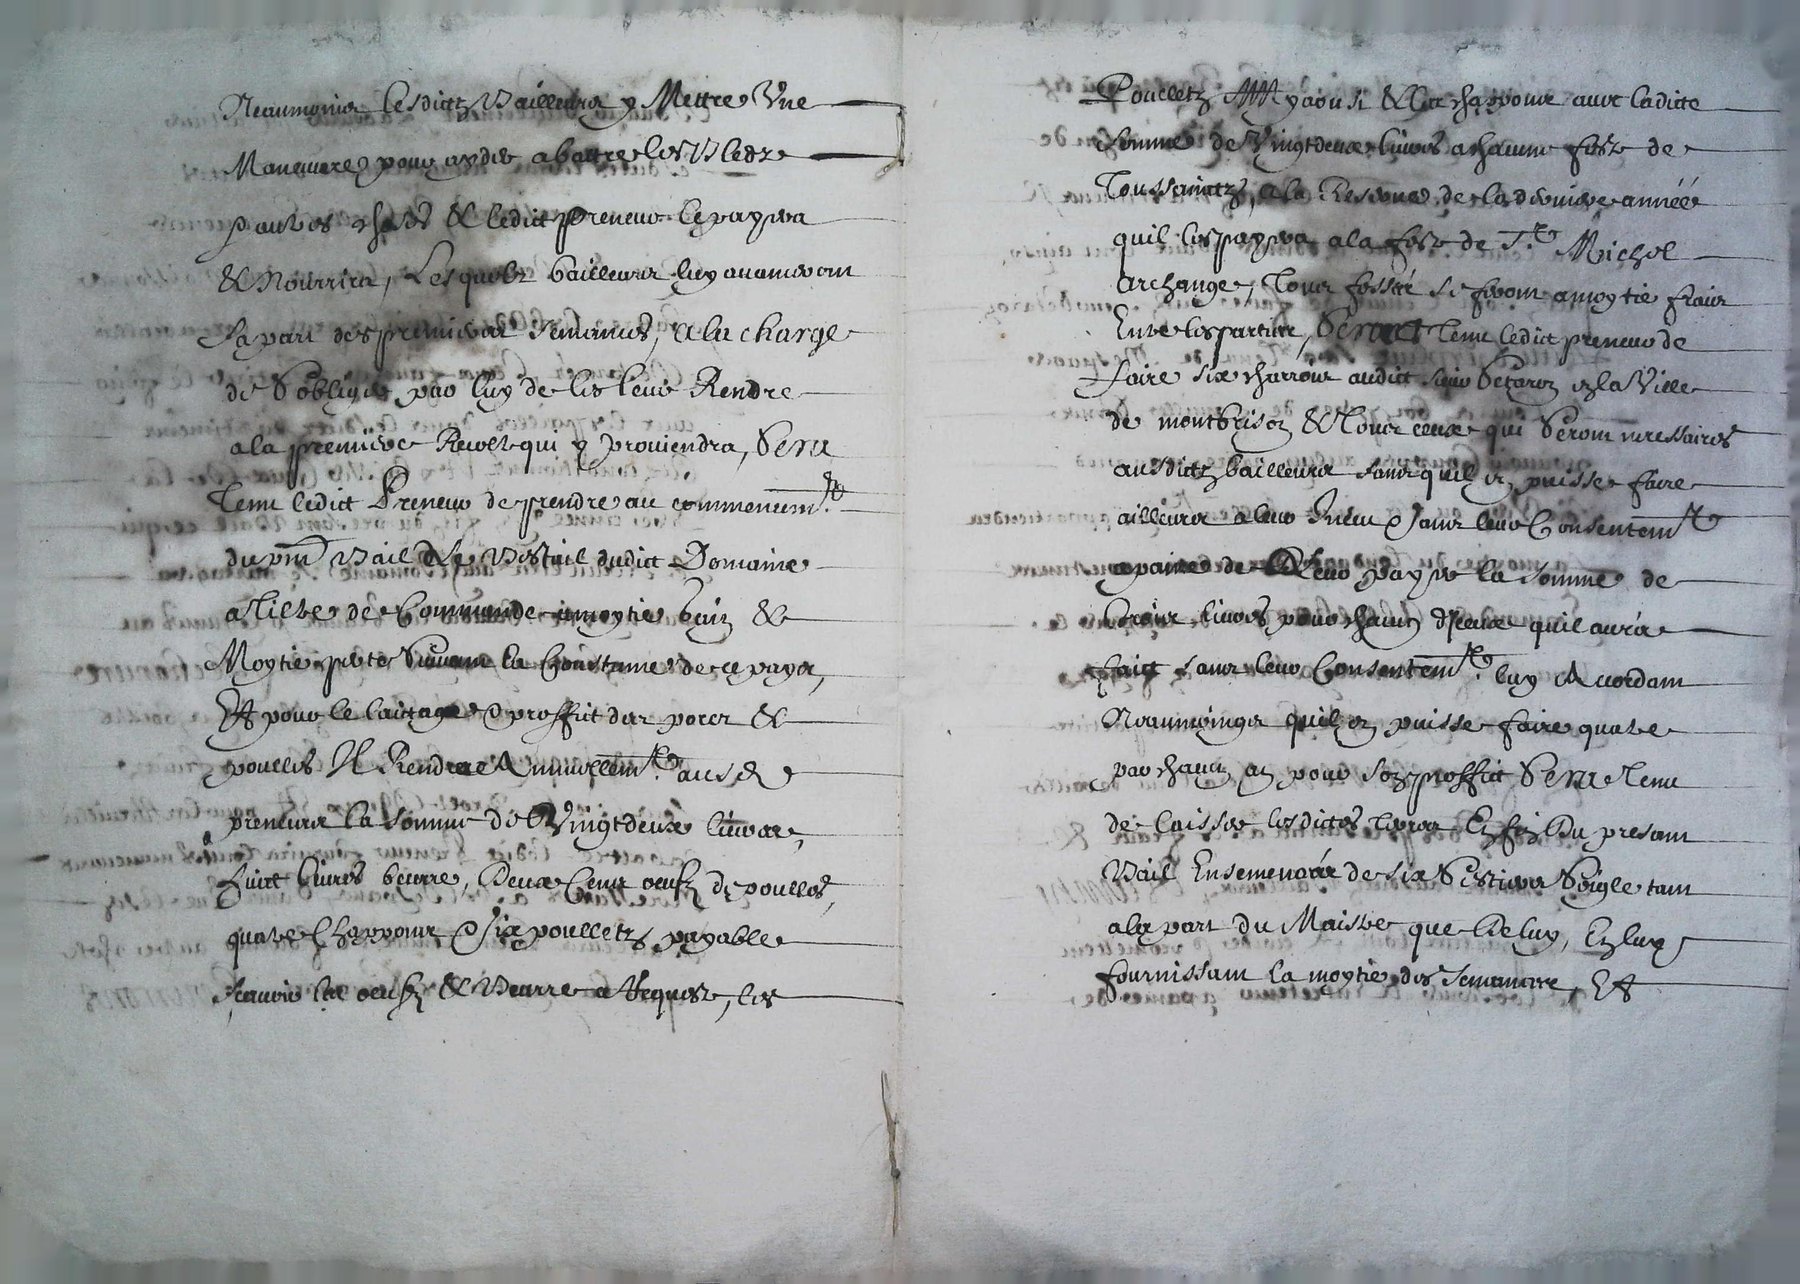 Neanmoins lesdictz Bailleurs y Mettre Une
Maneuvre pour aydes a battre les Bledz
& autres choses & ledict Preneur le payera
& Nourrira, Lesquelz bailleurs luy avanceront
sa part des premieres semences, a la charge
de S'obliger par luy de les leur Rendre
a la premiere Recolt qui y proviendra, Sera
Tenu ledict Preneur de prendre au commencemt.
du pnt Bail Le Bestail dudict Domaine
a Tiltre de Commande a moytie bein &
Moytie perte Suivant la Coustume de ce pays,
Et pour le laictage & proffict des porcz &
poulles Il Rendra Annuellemt. ausd
preneurs la somme de Vingtdeux livres,
huict livres beurre, Deux Centz oeufz de poulles,
quatre Chappons & Six poulletz payable
scavoir les oeufz & Beurre a Requeste, les
Poulletz & les chappons avec ladicte
somme de Vingtdeux livres a chacune feste de
Toussainctz, a la Reserve de la derniere année
quil les payera a la feste de St. Michel
Archange, Tous fossés se feront a moytie frais
Entre les parties, Sera Tenu ledict preneur de
faire six charrois audict sieur en la Ville
de montbrison & Tous ceux qui Seront necessaires
ausdictz bailleurs sans quil en puisse faire
ailleurs a leur Inscu & sans leur Consentemt
a paine de Leur payer la somme de
trois livres pour chacun d'iceux quil aura
faict sans leur Consentemt. luy Accordant
Neanmoings quil en puisse faire quatre
par chacun an pour son proffict Sera Tenu
de laisser lesdictes terres En fin Du presant
Bail Ensemencées de six Sestiers Seigle tant
a la part du Maistre que De luy, En luy
fournissant la moytie des Semances, Et